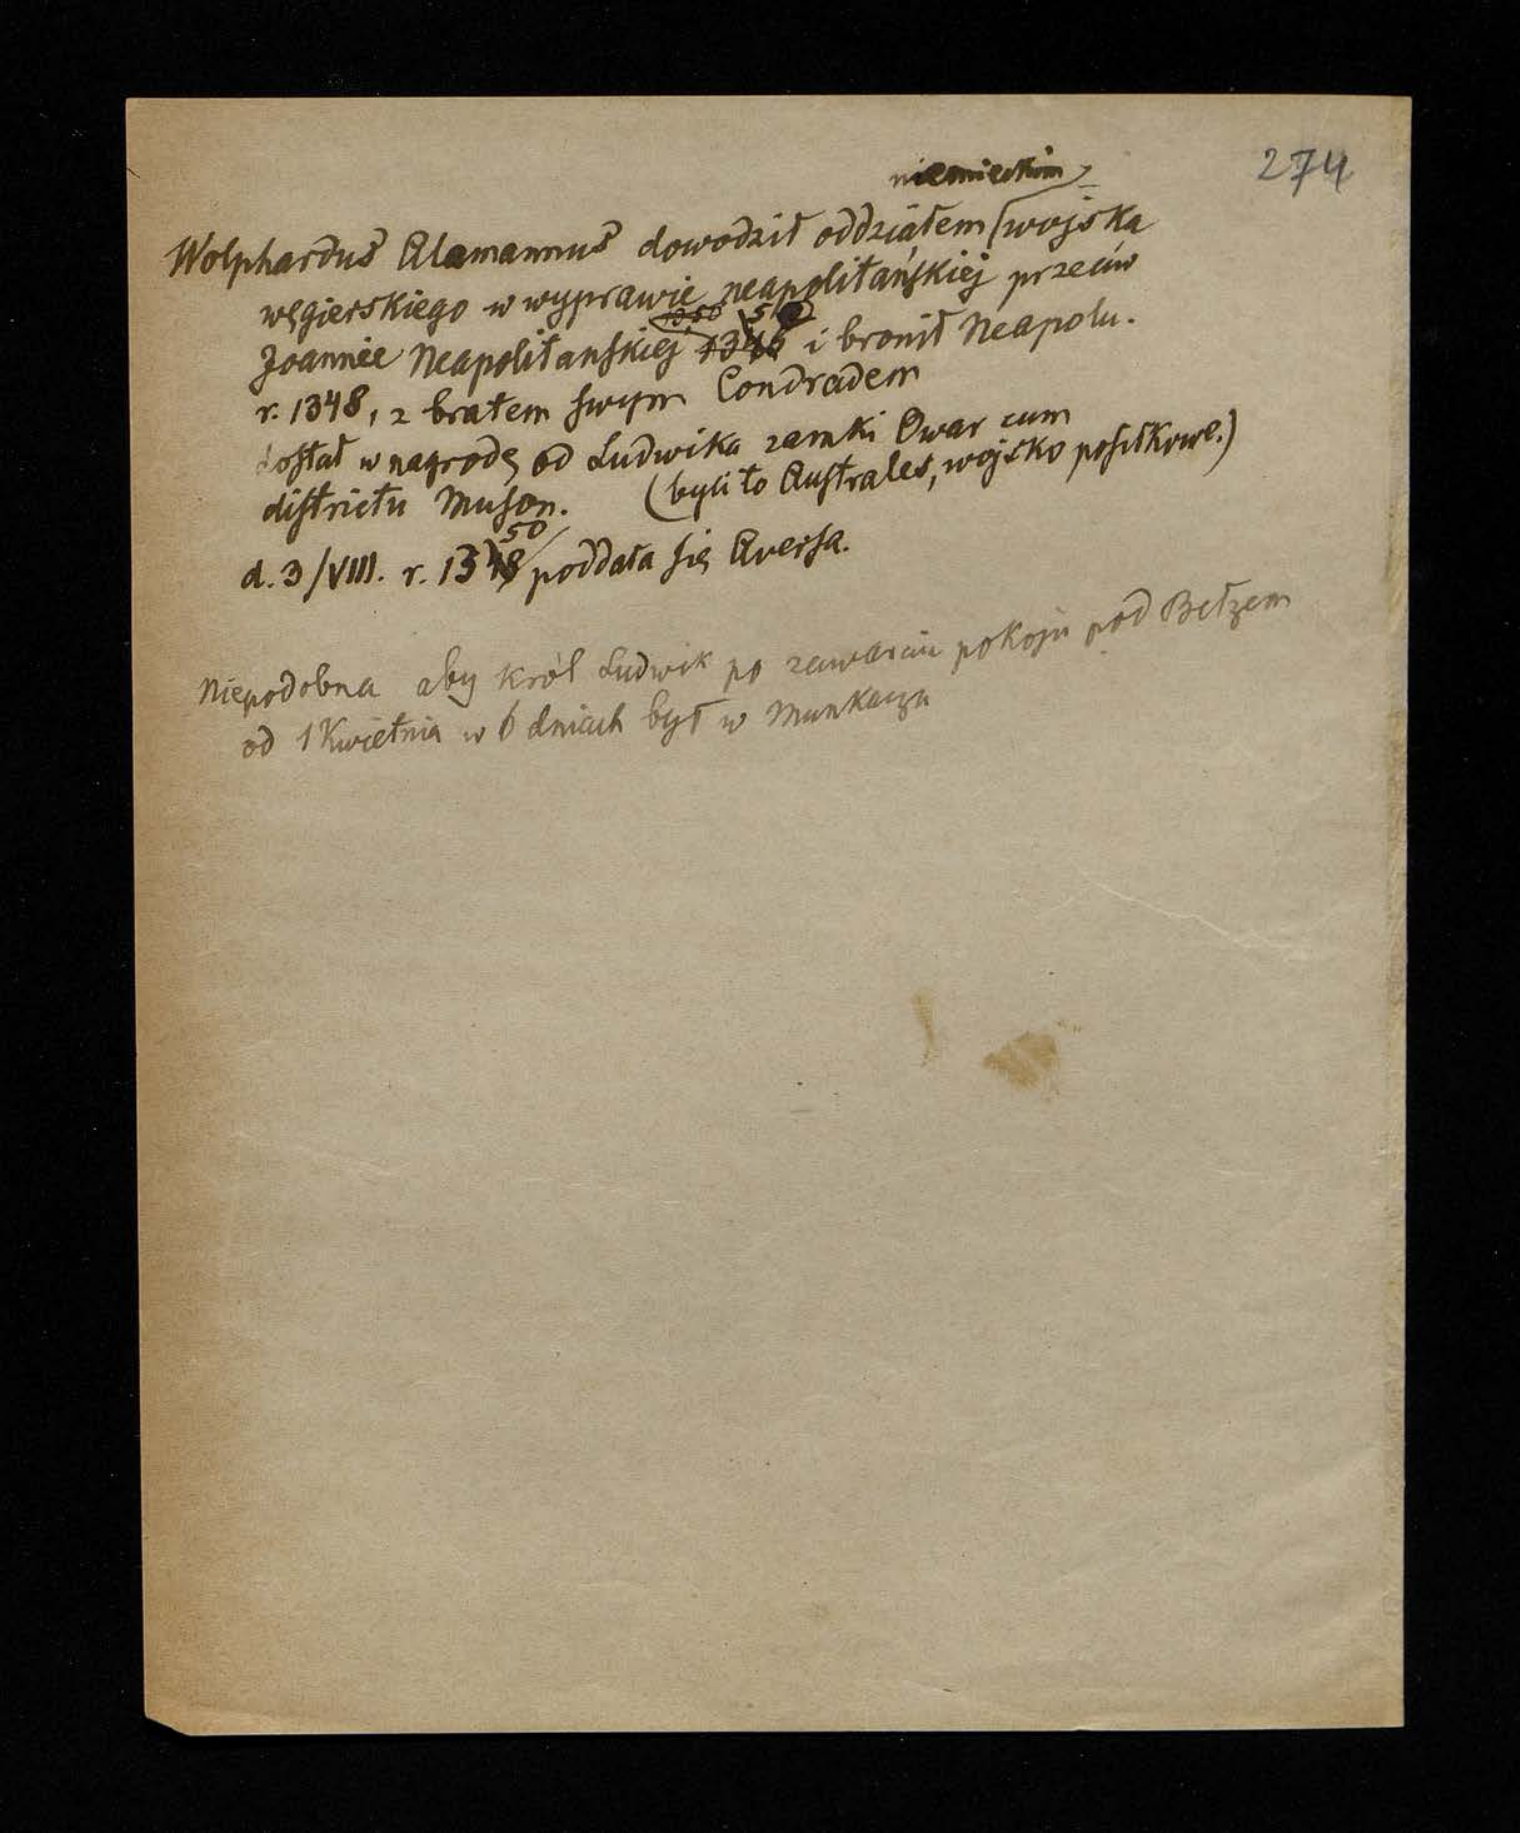 274
niemieckim
Wolphardus Alamannus dowodził oddziałem wojska
węgierskiego w wyprawie neapolitańskiej przeciw
1350 5
Joannie Neapolitanskiej i bronił Neapolu.
r. 1348, z bratem swym Condradem
dostał w nagrodę od Ludwika zamki Owar cum
districtu Muson. (byli to Australes, wojsko posiłkowe.)
50
d. 3/VIII. r. 1348 poddała się Aversa.
Niepodobna aby król Ludwik po zawarciu pokoju pod Bełzem
od 1 Kwietnia w 6 dniach był w Munkaczu